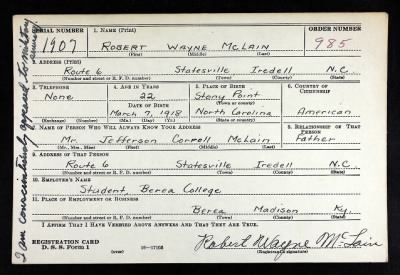 SERIAL NUMBER 1. NAME (Print) ORDER NUMBER
1907 ROBERT WAYNE MCLAIN 985
(First) (Middle) (Last)
3. ADDRESS (Print)
Route 6 Statesville Iredell N.C.
(Number and street or R. F. D. number) (Town) (County) (State)
3. TELEPHONE 4. AGE IN YEARS 5. PLACE OF BIRTH 6. COUNTRY OF CITIZENSHIP
None 22 Stony Point
DATE OF BIRTH (Town or county)
March 7, 1918 North Carolina American
(Exchange) (Number) (Mo.) (Day) (Yr.) (State or country)
7. NAME OF PERSON WHO WILL ALWAYS KNOW YOUR ADDRESS 8. RELATIONSHIP OF THAT PERSON
Mr. Jefferson Correll McLain Father
(Mr., Mrs., Miss) (First) (Middle) (Last)
9. ADDRESS OF THAT PERSON
Route 6 Statesville Iredell N.C.
(Number and street or R. F. D. number) (Town) (County) (State)
10. EMPLOYER'S NAME
Student, Berea College
11. PLACE OF EMPLOYMENT OR BUSINESS
Berea Madison Ky.
(Number and street or R. F. D. number) (Town) (County) (State)
I AFFIRM THAT I HAVE VERIFIED ABOVE ANSWERS AND THAT THEY ARE TRUE.
REGISTRATION CARD
D. S. S. Form 1 (over) Robert Wayne McLain
(Registrant's signature)
I am conscientiously opposed to military service.